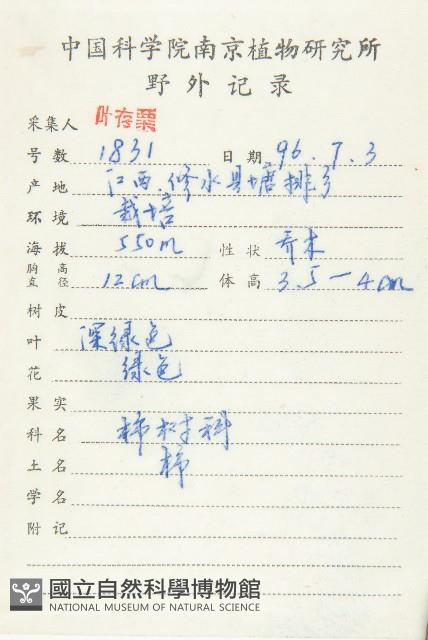 中国科学院南京植物研究所
野外记录
采集人 叶存粟
号数 1831 日期 96.7.3
产地 江西.修水县塘排乡
环境 栽培
海拔 550m 性状 乔木
胸高直径 12cm 体高 3.5-4cm
树皮
叶 深绿色
花 绿色
果实
科名 柿树科
土名 柿
学名
附记
國立自然科學博物館
NATIONAL MUSEUM OF NATURAL SCIENCE